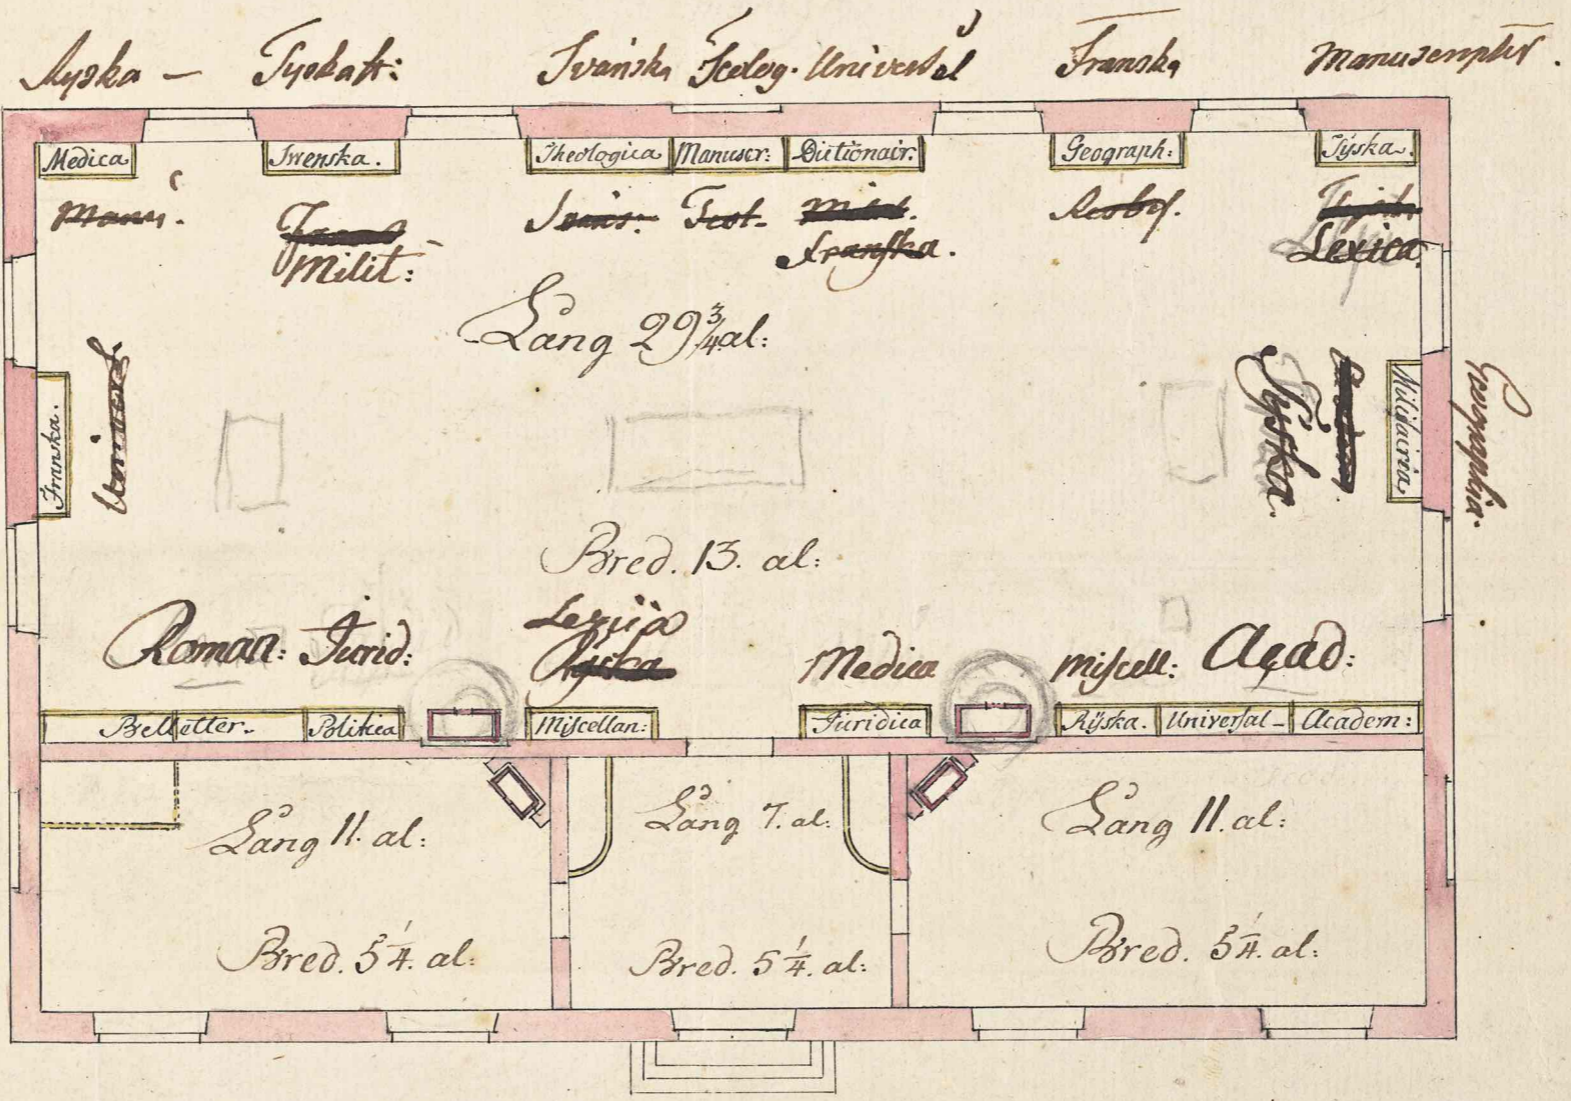 Ryska — Tyska tt: Svänska Teolog. Universal Franska Manuscripter.
Medica Swenska. Theologica Manuscr: Dictionair. Geograph: Tÿska.
Manu. Sväns: Teol- Resbes.
Milit: Franska. Lexica
Lång 29 3/4 al:
Franska. Univers. Tÿska. Militairia Geographia.
Bred. 13. al:
Roman: Jurid: Lexica Medica Miscell: Acad:
Ryska
Bellletter. Politica Miscellan: Juridica Rÿska. Universal- Academ:
Lång 11. al: Lång 7. al: Lång 11. al:
Bred. 5 1/4. al: Bred. 5 1/4. al: Bred. 5 1/4. al: